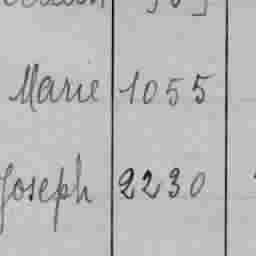 Marie 1055
Joseph 2230